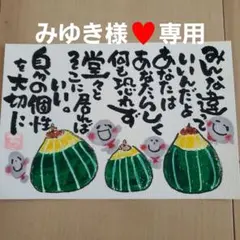 みゆき様♥専用
みんな違って
いいんだよ
あなたは
あなたらしく
何も恐れず
堂々と
そこに居れば
いい。
自分の個性
を大切に